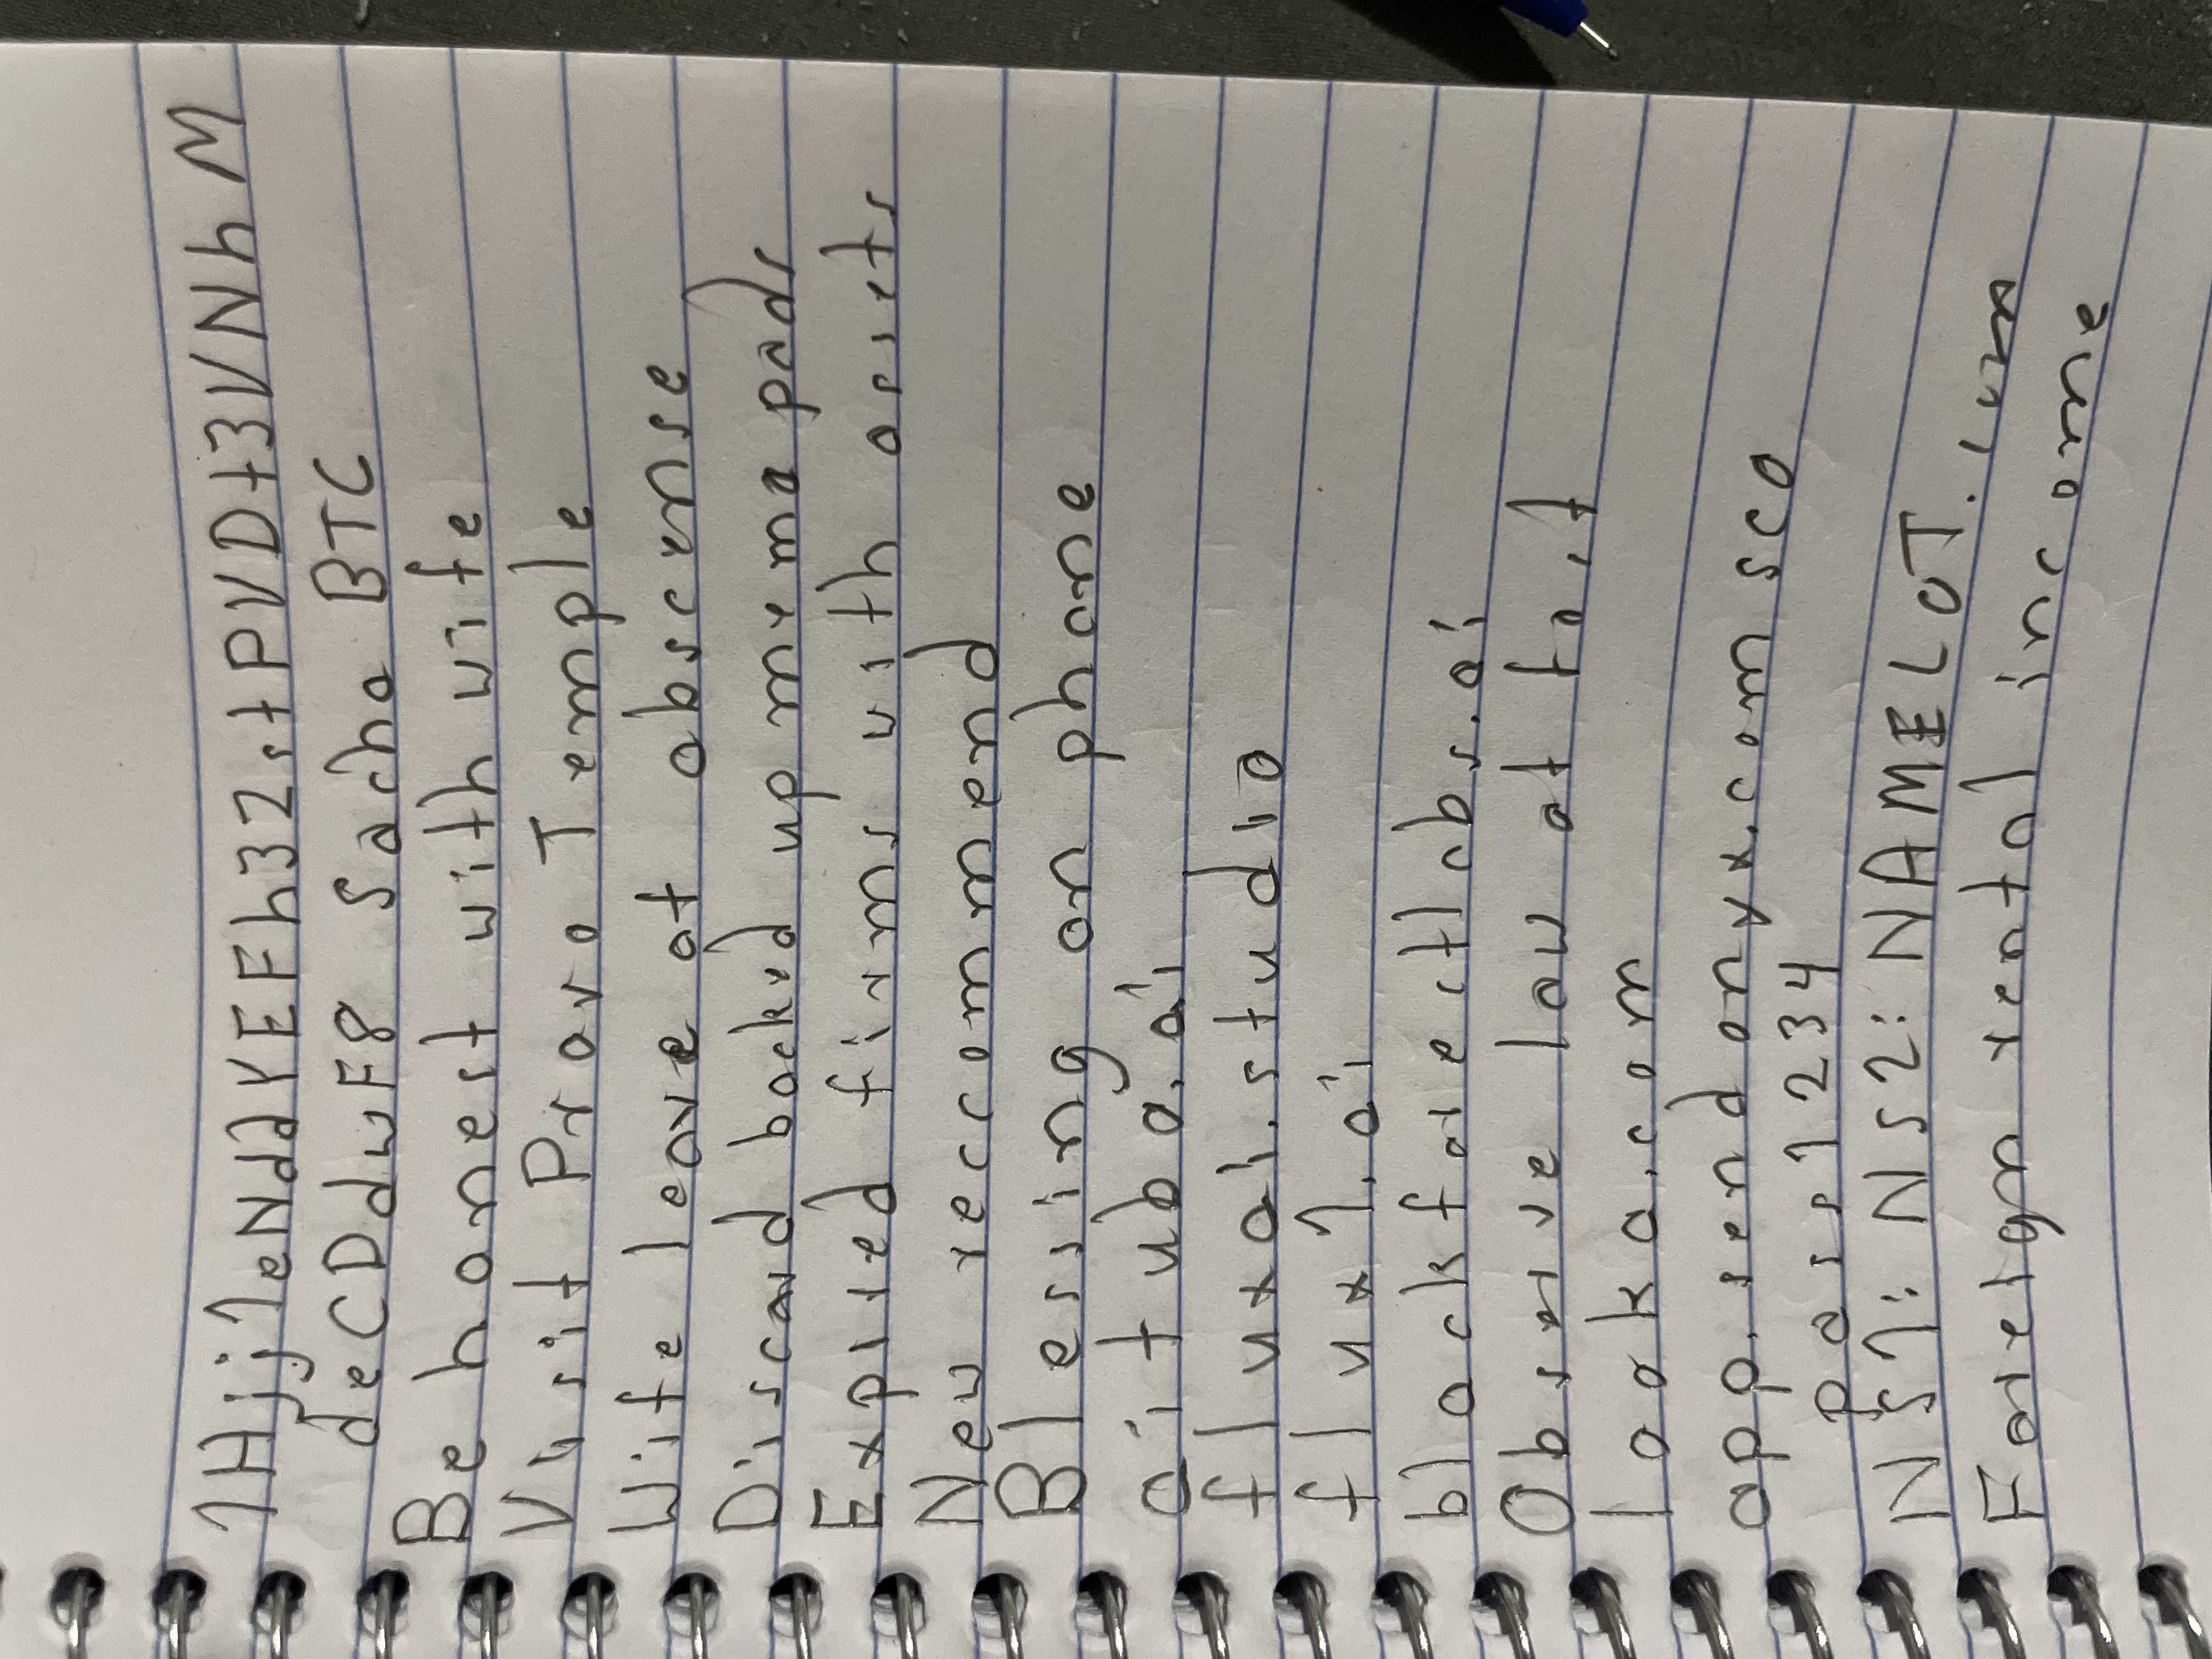 1Hjj1eNddYEFh32stPVDt3VNhM
deCDdwF8 Sacha BTC
Be honest with wife
Visit Provo Temple
Wife leave of abscense
Discard backed up meme pads
Expired firms with assets
New recommend
Blessing on phone
aituba.ai
fluxai.studio
flux1.ai
blackforectlabs.ai
Observe law of fast
looka.com
app.sendonyx.com sco
Pass1234
NS1: NS2: NAMELOT.
Foreign rental income